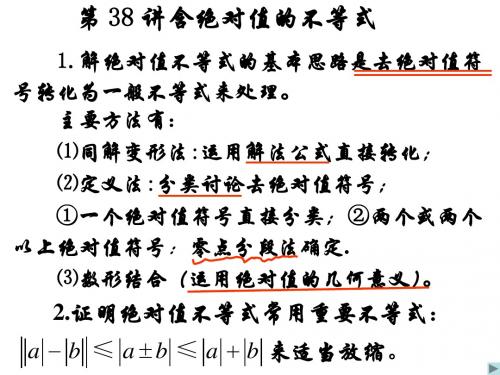 第 38 讲含绝对值的不等式
1. 解绝对值不等式的基本思路是去绝对值符
号转化为一般不等式来处理。
主要方法有：
⑴同解变形法：运用解法公式直接转化；
⑵定义法：分类讨论去绝对值符号；
①一个绝对值符号直接分类；②两个或两个
以上绝对值符号；零点分段法确定.
⑶数形结合（运用绝对值的几何意义）。
2.证明绝对值不等式常用重要不等式：
||a|−|b|| ≤ |a±b| ≤ |a|+|b| 来适当放缩。